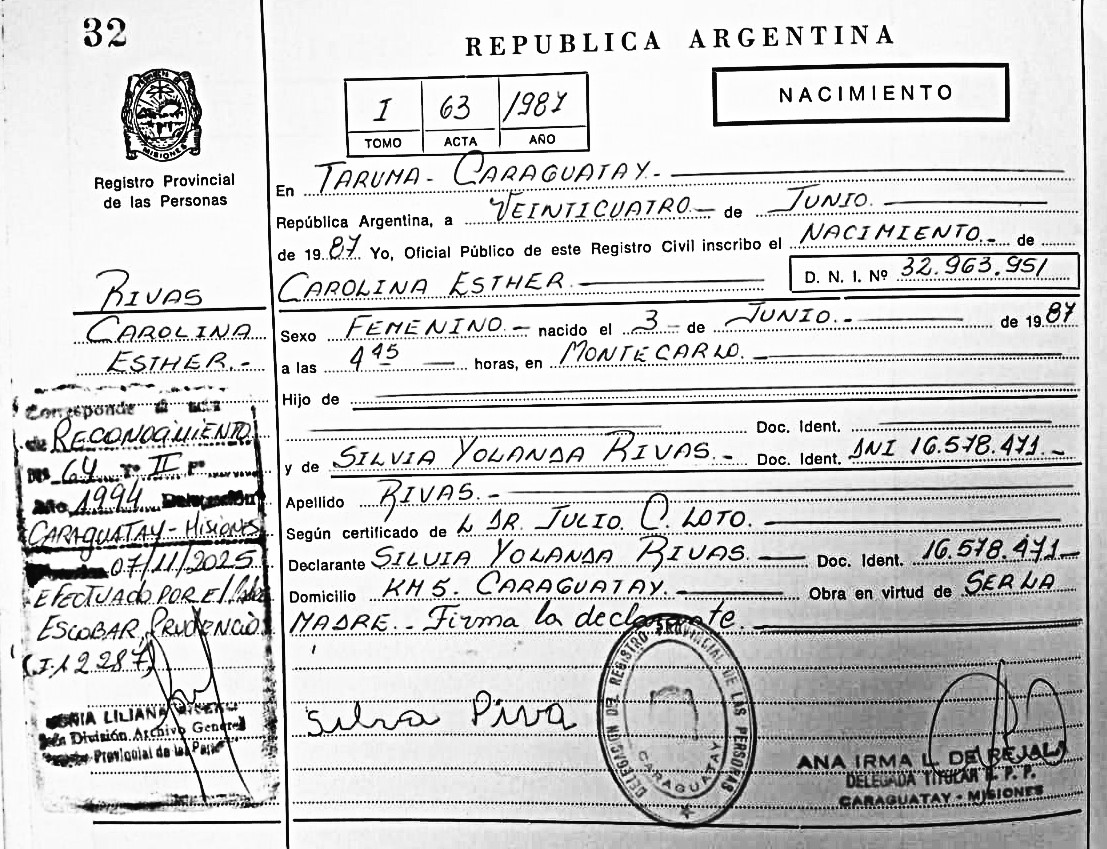 32
REPUBLICA ARGENTINA
MISIONES
Registro Provincial
de las Personas
I 63 1987
TOMO ACTA AÑO
NACIMIENTO
En TARUMA - CARAGUATAY.-
República Argentina, a VEINTICUATRO.- de JUNIO.
de 1987 Yo, Oficial Público de este Registro Civil inscribo el NACIMIENTO.- de
CAROLINA ESTHER.- D. N. I. Nº 32.963.951
Sexo FEMENINO.- nacido el 3 - de JUNIO.- de 1987
a las 4 45 horas, en MONTECARLO.
Hijo de
Doc. Ident.
y de SILVIA YOLANDA RIVAS.- Doc. Ident. DNI 16.578.471.-
Apellido RIVAS.-
Según certificado de DR. JULIO. C. LOTO.
Declarante SILVIA YOLANDA RIVAS. Doc. Ident. 16.578.471-
Domicilio KM 5. CARAGUATAY. Obra en virtud de SER LA
MADRE.- Firma la declarante.
RIVAS
CAROLINA
ESTHER.-
Corresponde
de RECONOCIMIENTO
Nº 64 Tº II Fº
Año 1994 Delegación
CARAGUATAY - MISIONES
07/11/2025
EFECTUADO POR El
ESCOBAR, PRUDENCIO
LILIANA
División Archivo General
Provincial de las
DELEGACION DEL REGISTRO PROVINCIAL DE LAS PERSONAS
CARAGUATAY
ANA IRMA L. DE REJALA
DELEGADA TITULAR R. P. P.
CARAGUATAY - MISIONES